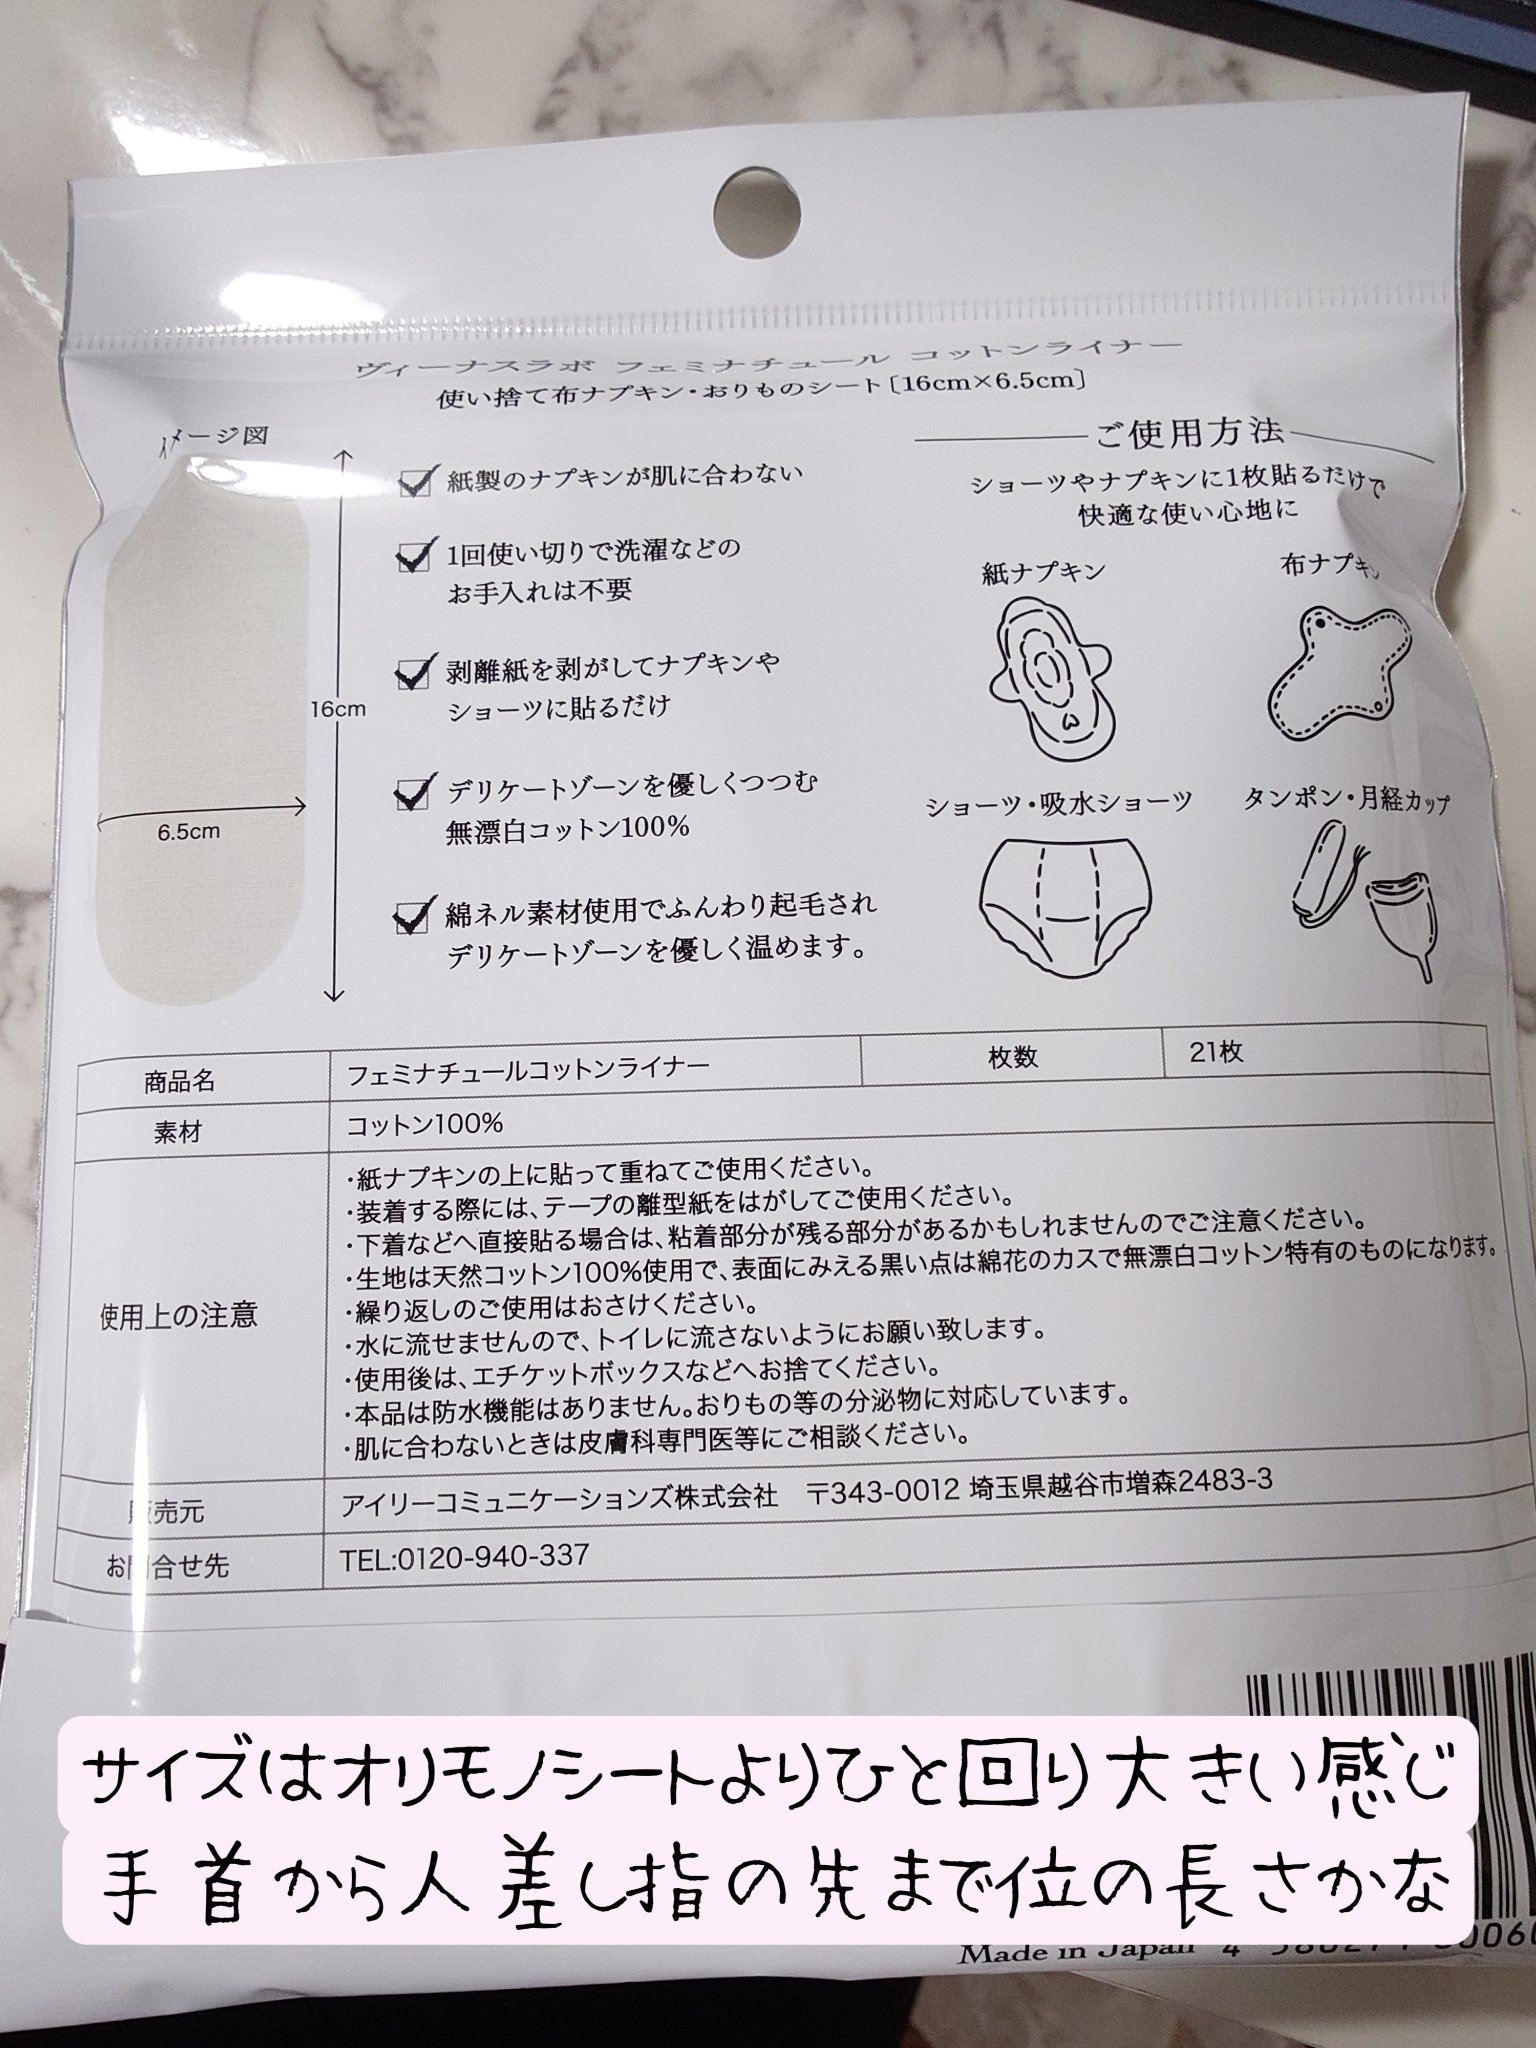 ヴィーナスラボ フェミナチュール コットンライナー
使い捨て布ナプキン・おりものシート〔16cm×6.5cm〕
イメージ図
16cm
6.5cm
紙製のナプキンが肌に合わない
1回使い切りで洗濯などの
お手入れは不要
剥離紙を剥がしてナプキンや
ショーツに貼るだけ
デリケートゾーンを優しくつつむ
無漂白コットン100%
綿ネル素材使用でふんわり起毛され
デリケートゾーンを優しく温めます。
ご使用方法
ショーツやナプキンに1枚貼るだけで
快適な使い心地に
紙ナプキン 布ナプキン
ショーツ・吸水ショーツ タンポン・月経カップ
商品名 フェミナチュールコットンライナー 枚数 21枚
素材 コットン100%
使用上の注意
・紙ナプキンの上に貼って重ねてご使用ください。
・装着する際には、テープの離型紙をはがしてご使用ください。
・下着などへ直接貼る場合は、粘着部分が残る部分があるかもしれませんのでご注意ください。
・生地は天然コットン100%使用で、表面にみえる黒い点は綿花のカスで無漂白コットン特有のものになります。
・繰り返しのご使用はおさけください。
・水に流せませんので、トイレに流さないようにお願い致します。
・使用後は、エチケットボックスなどへお捨てください。
・本品は防水機能はありません。おりもの等の分泌物に対応しています。
・肌に合わないときは皮膚科専門医等にご相談ください。
販売元 アイリーコミュニケーションズ株式会社 〒343-0012 埼玉県越谷市増森2483-3
お問合せ先 TEL:0120-940-337
サイズはオリモノシートよりひと回り大きい感じ
手首から人差し指の先まで位の長さかな
Made in Japan